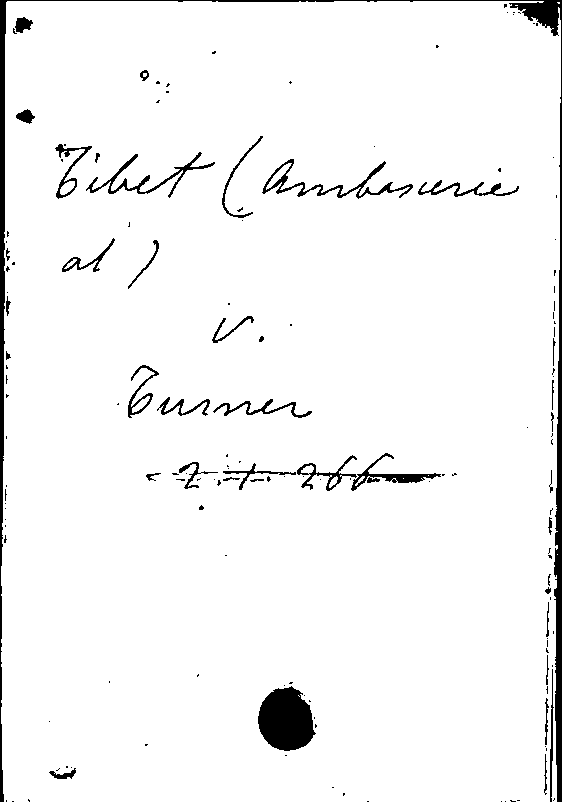 Tibet (Ambascerie
al)
v.
Turner
2. 1. 266